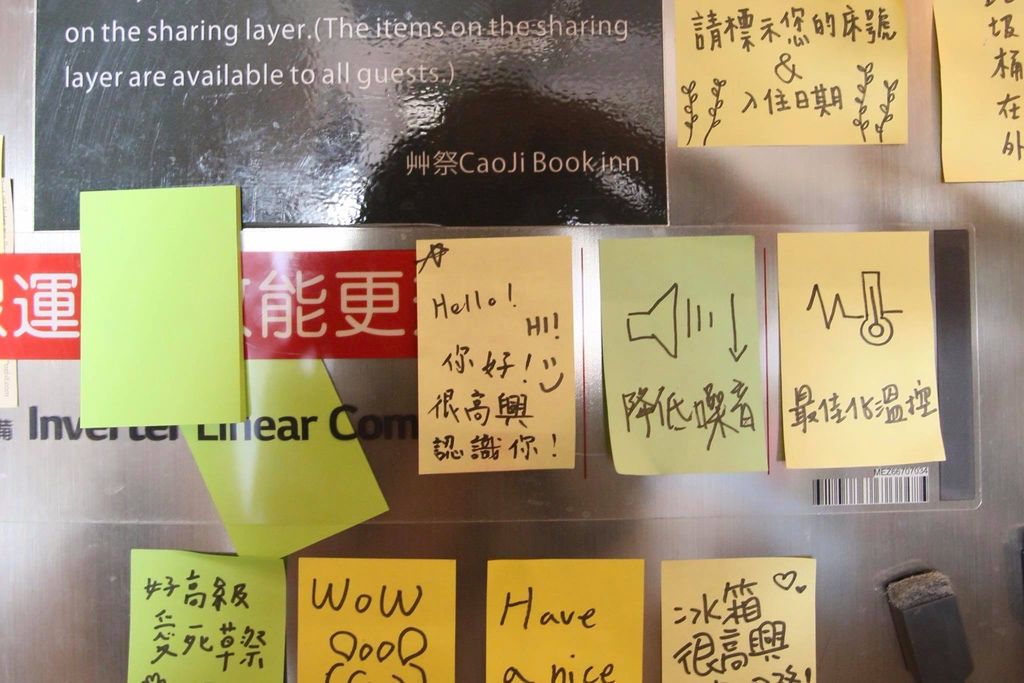 on the sharing layer.(The items on the sharing
layer are available to all guests.)
艸祭CaoJi Book inn
請標示您的床號
&
入住日期
圾
桶
在
外
運
能更
Inverter Linear Com
備
Hello!
HI!
你好!
很高興
認識你!
降低噪音
最佳化溫控
ME266707034
好高級
愛死草祭
WOW
Have
a nice
冰箱
很高興